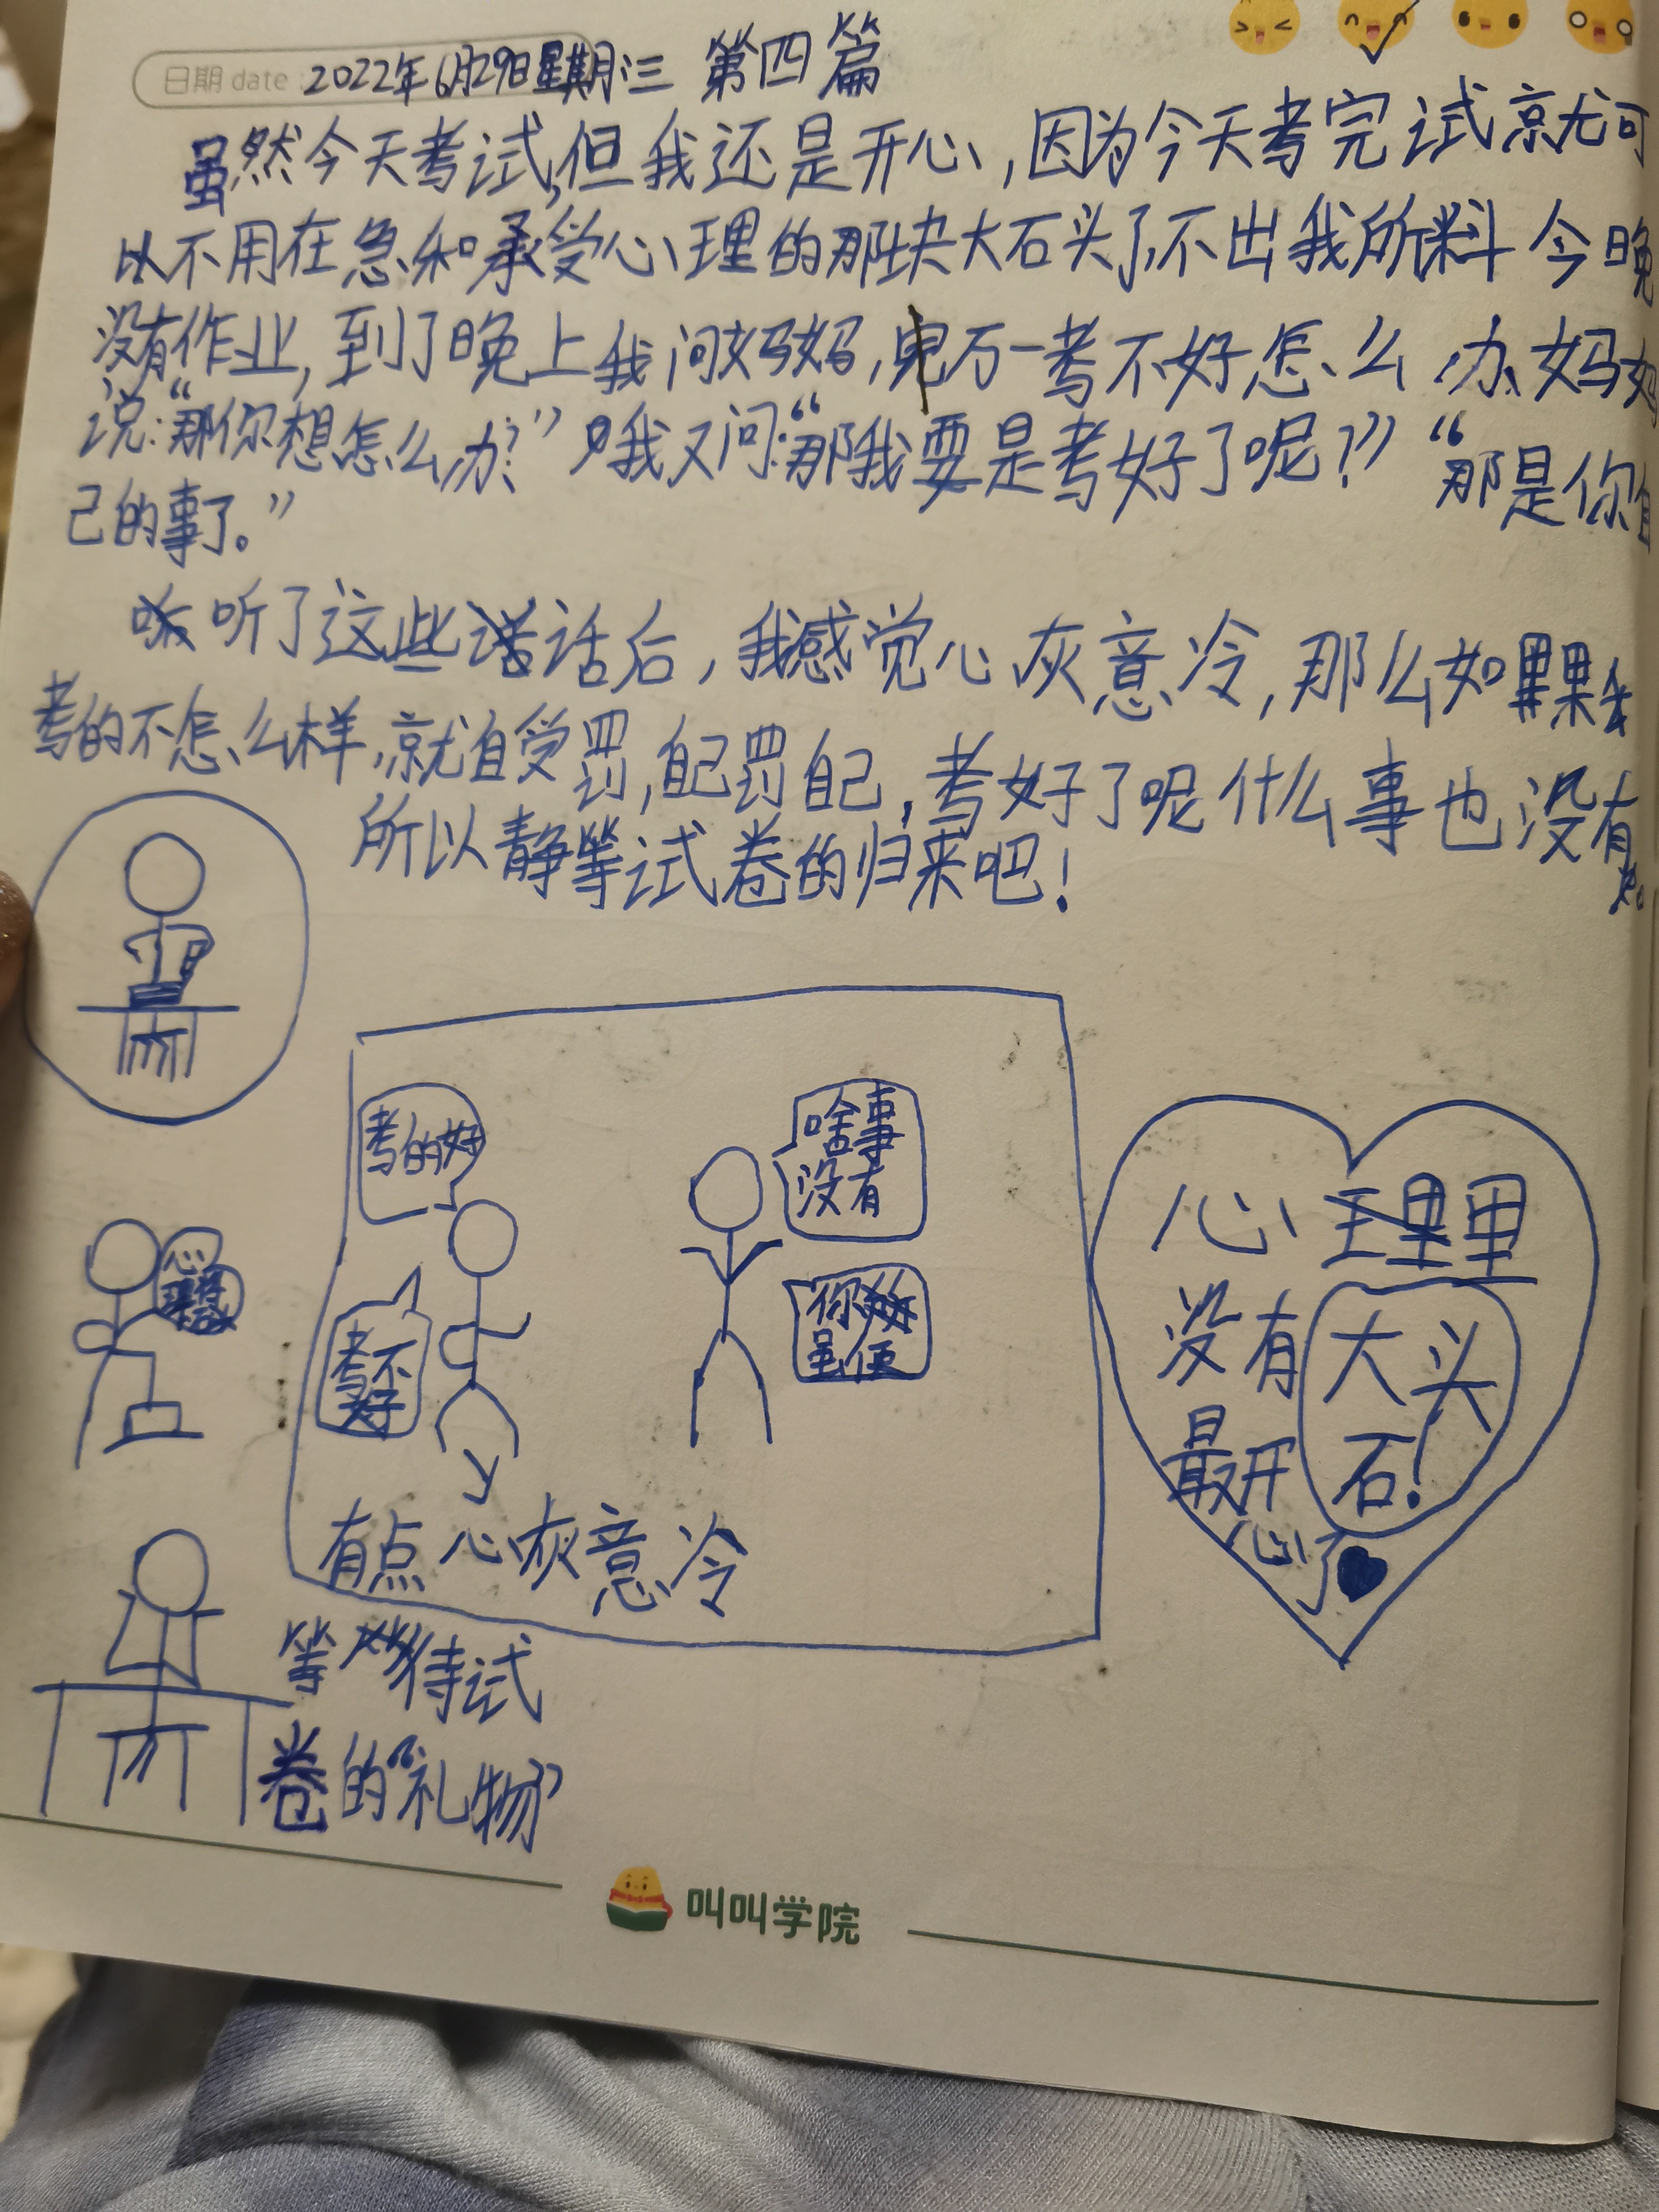 日期 date 2022年6月29日星期三 第四篇
虽然今天考试,但我还是开心,因为今天考完试就可
以不用在急和承受心理的那块大石头了,不出我所料 今晚
没有作业,到了晚上我问妈妈,万一考不好怎么办,妈妈
说:“那你想怎么办?”我又问:“那我要是考好了呢?”“那是你自
己的事了。”
听了这些话后,我感觉心灰意冷,那么如果
考的不怎么样,就自受罚,自己罚自己,考好了呢什么事也没有
所以静等试卷的归来吧!
考的好
啥事
没有
考不
好
你
有点心灰意冷
心里
没有
大头
石!
最开
心了
心
等待试
卷的“礼物”
叫叫学院